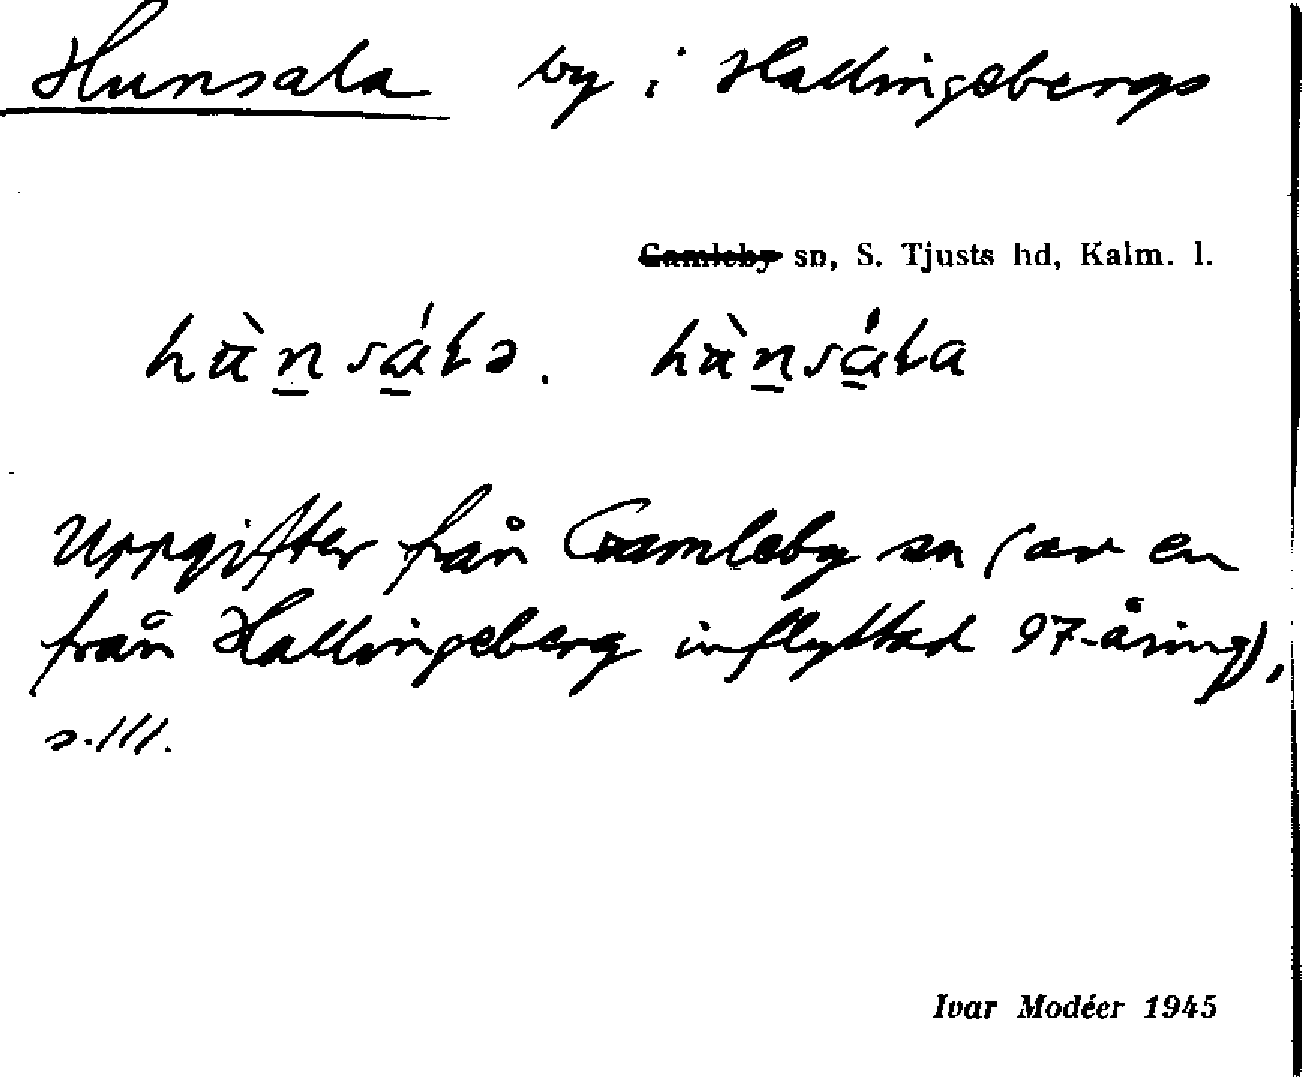 Hunsala by i Hallingebergs
Gamleby sn, S. Tjusts hd, Kalm. l.
Uppgifter från Gamleby sn (av en
från Hallingeberg inflyttad 97-åring),
s. 111.
Ivar Modéer 1945